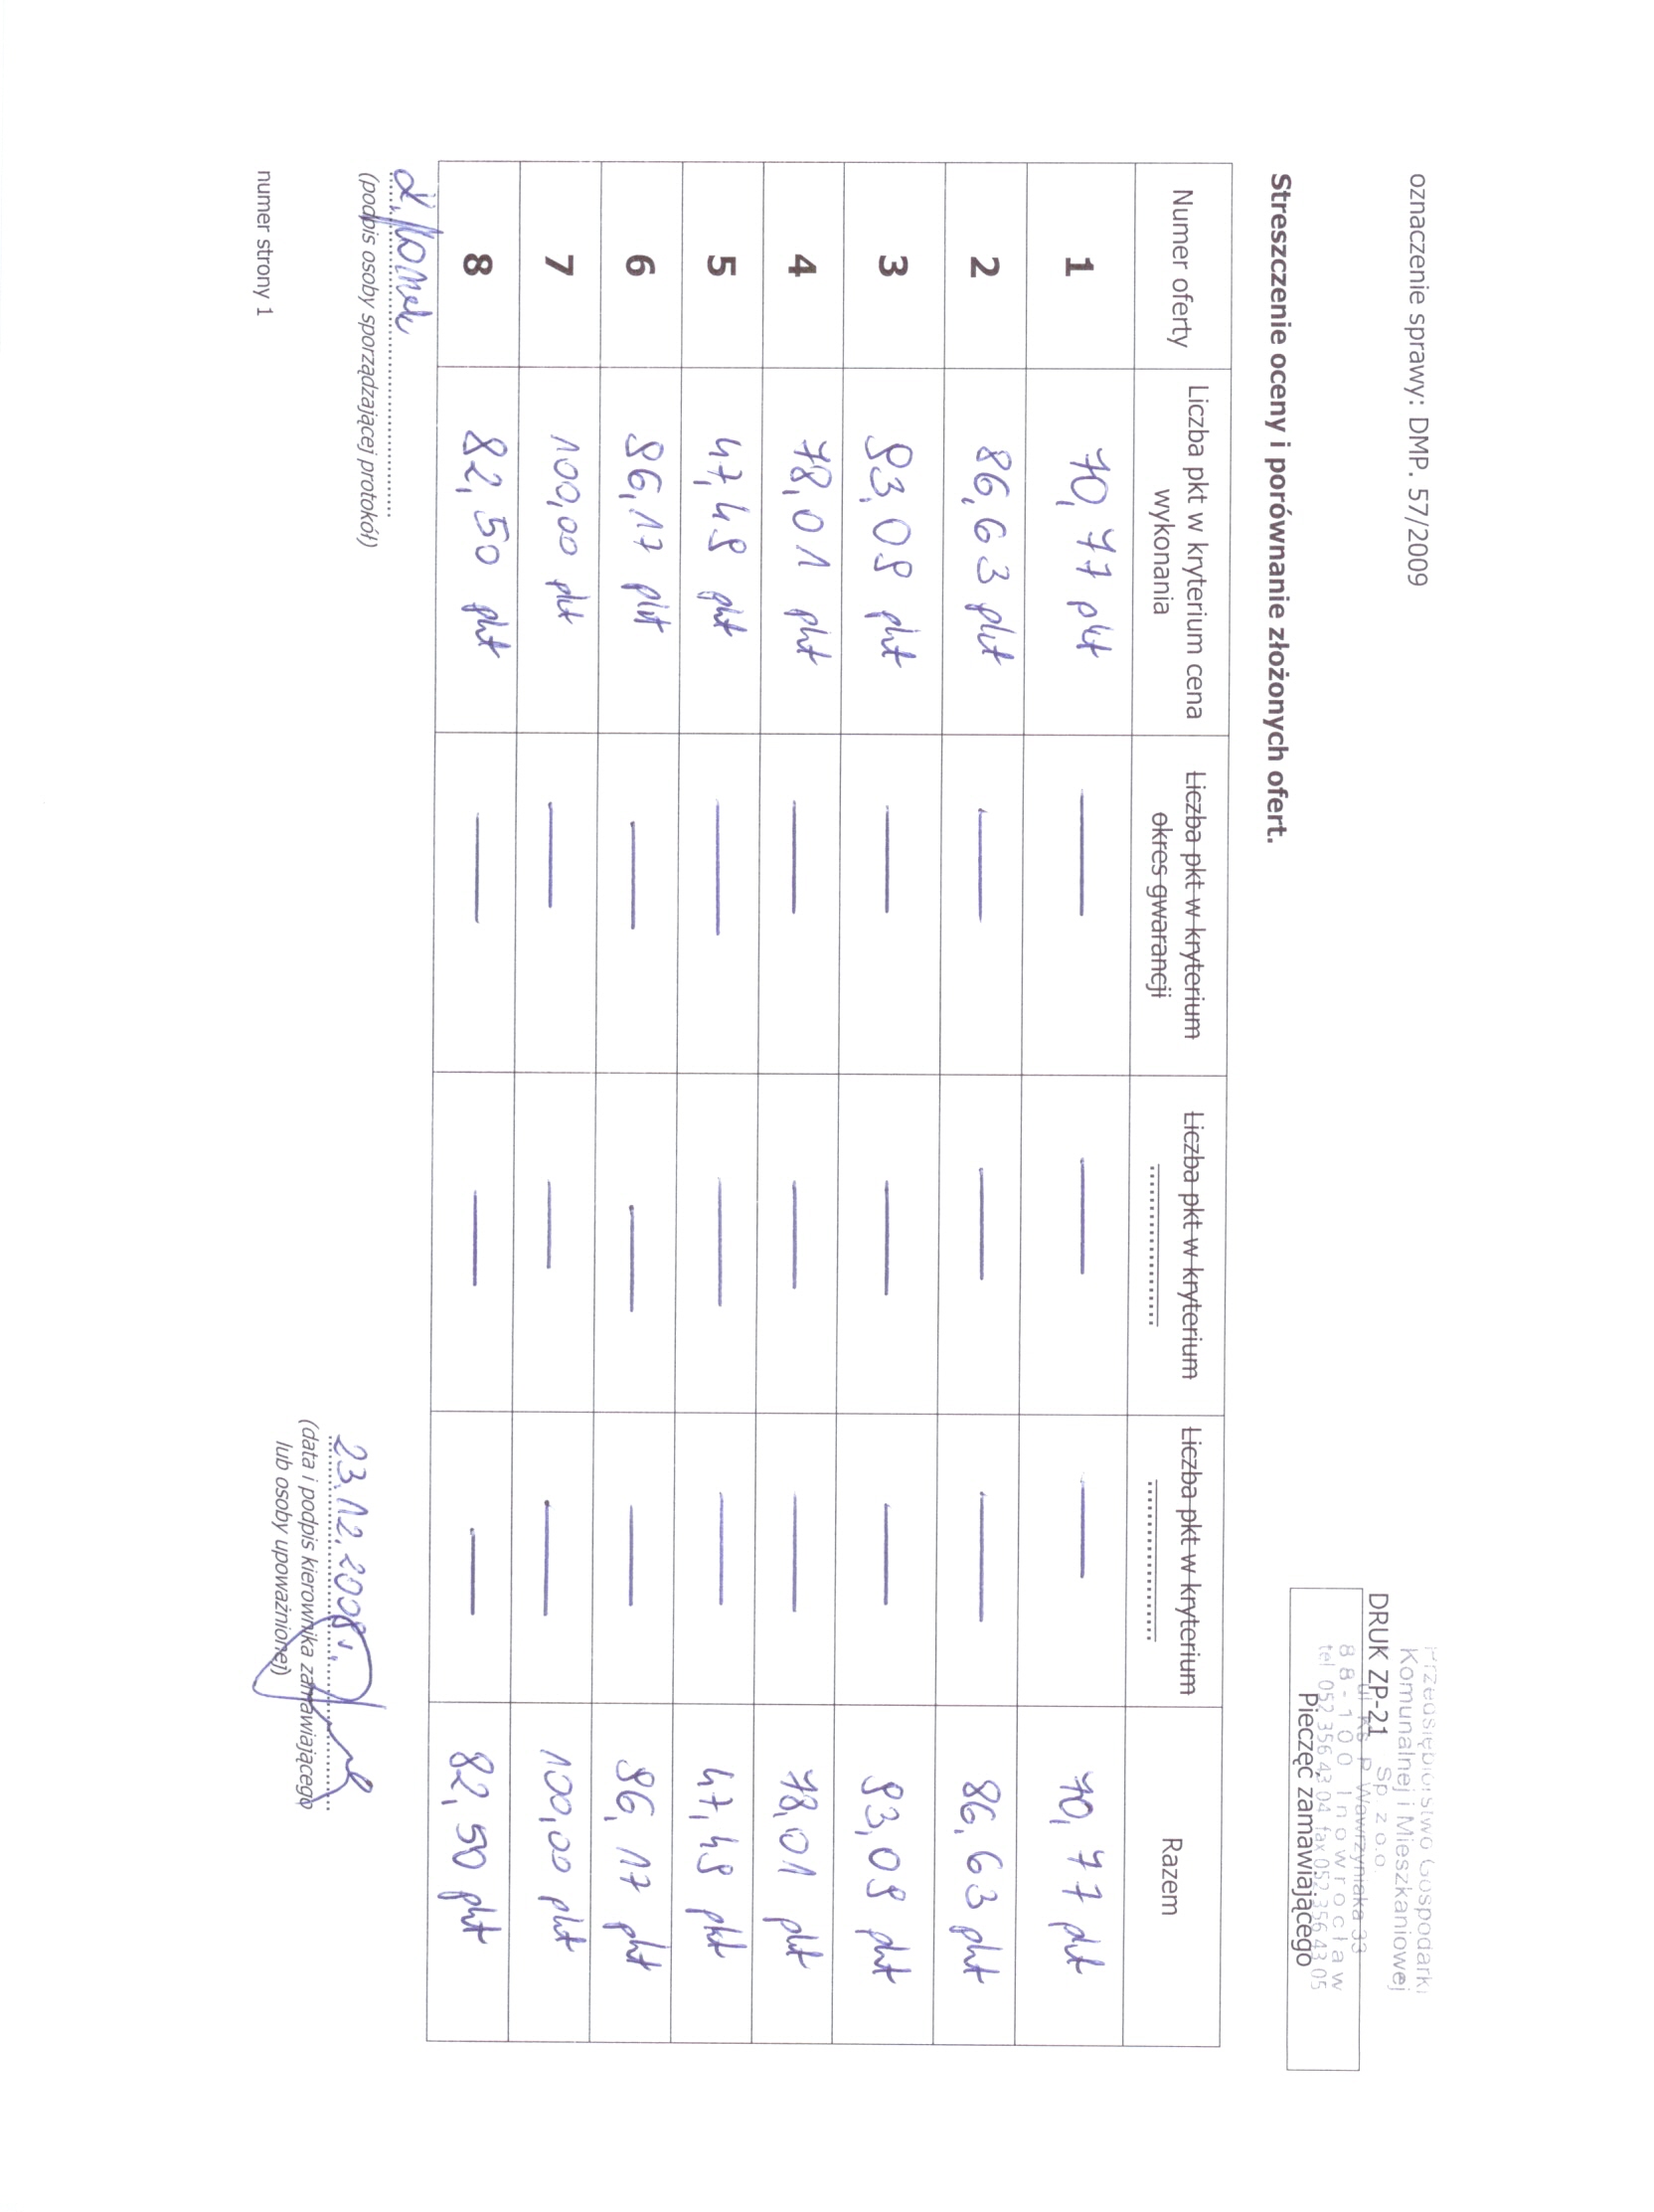 oznaczenie sprawy: DMP. 57/2009
Przedsiębiorstwo Gospodarki
Komunalnej i Mieszkaniowej
DRUK ZP-21
Sp. z o.o.
ul. Ks. P. Wawrzyniaka 33
88-100 Inowrocław
tel 052 356 43 04 fax 052 356 43 05
Pieczęć zamawiającego
Streszczenie oceny i porównanie złożonych ofert.
Numer oferty Liczba pkt w kryterium cena wykonania Liczba pkt w kryterium okres gwarancji Liczba pkt w kryterium .................... Liczba pkt w kryterium .................... Razem
1 70,77 pkt — — — 70,77 pkt
2 86,63 pkt — — — 86,63 pkt
3 93,09 pkt — — — 93,09 pkt
4 78,01 pkt — — — 78,01 pkt
5 47,49 pkt — — — 47,49 pkt
6 96,17 pkt — — — 96,17 pkt
7 100,00 pkt — — — 100,00 pkt
8 82,50 pkt — — — 82,50 pkt
(podpis osoby sporządzającej protokół)
23.12.2009r.
(data i podpis kierownika zamawiającego
lub osoby upoważnionej)
numer strony 1